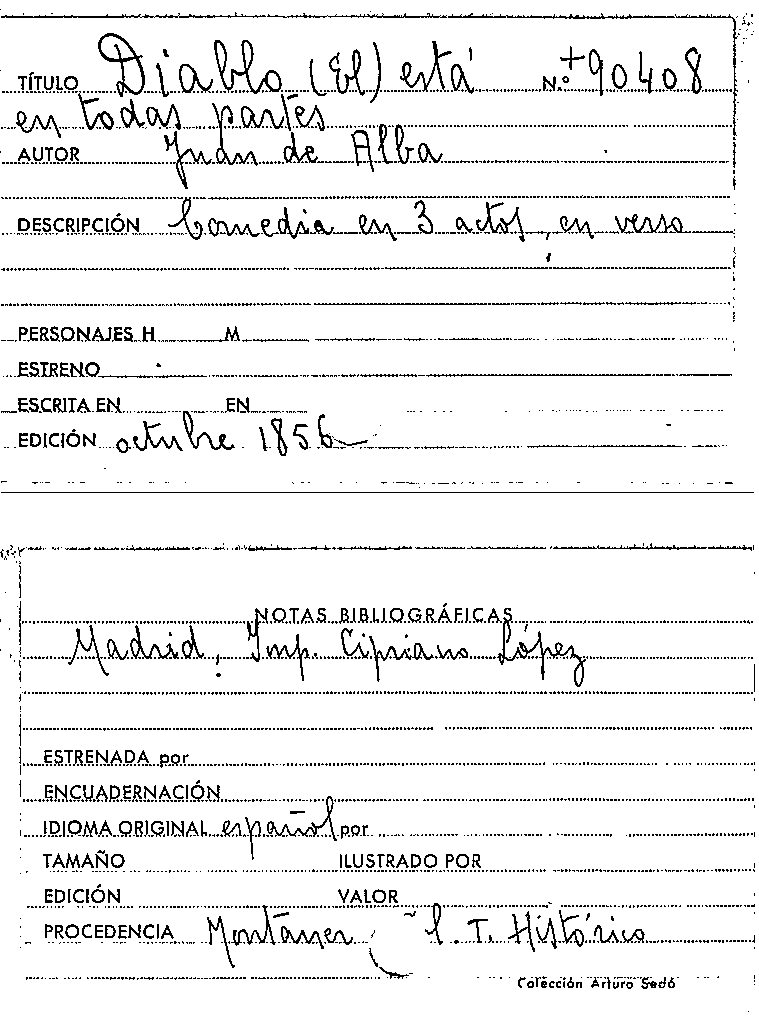 TÍTULO Diablo (El) está N.º +90408
en todas partes
AUTOR Juan de Alba
DESCRIPCIÓN Comedia en 3 actos, en verso
PERSONAJES H M
ESTRENO
ESCRITA EN EN
EDICIÓN octubre 1856
NOTAS BIBLIOGRÁFICAS
Madrid, Imp. Cipriano López
ESTRENADA por
ENCUADERNACIÓN
IDIOMA ORIGINAL español por
TAMAÑO ILUSTRADO POR
EDICIÓN VALOR
PROCEDENCIA Montaner T. Histórico
Colección Arturo Sedó